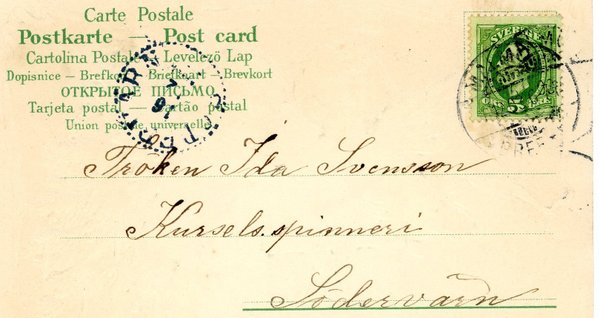 Carte Postale
Postkarte — Post card
Cartolina Postale — Levelező Lap
Dopisnice — Brefkort — Briefkaart — Brevkort
ОТКРЫТОЕ ПИСЬМО
Tarjeta postal — Cartão postal
Union postale universelle
SVERIGE
5
Fröken Ida Svensson
Kursels.spinneri
Södervärn